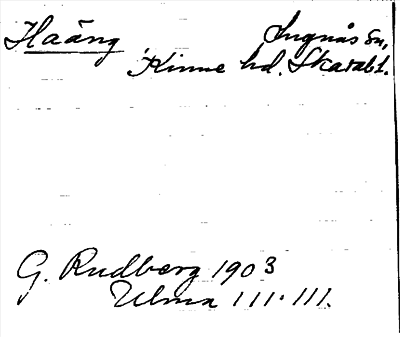 Haäng Lugnås sn,
Kinne hd. Skarab l.
G. Rudberg 1903
Ulma 111.111.